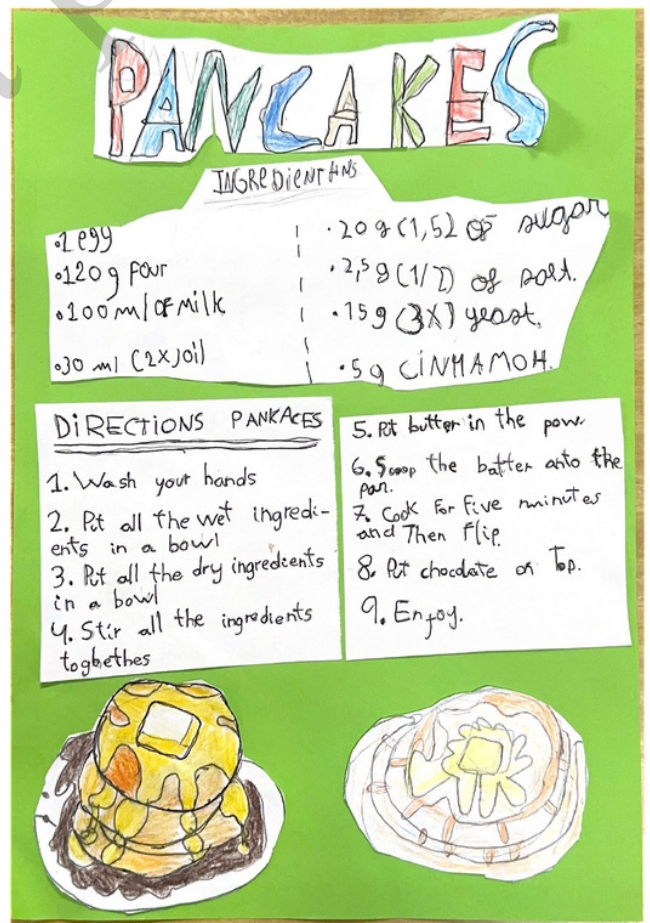 PANCAKES
INGREDIENTANS
•1 egg
•120 g four
•100 ml of milk
•30 ml (2x)oil
•20 g (1,5) of sugar
•2,5 g (1/2) of salt.
•15 g (3x) yeast.
•5 g CiNHAMOH.
DiRECTIONS PANKACES
1. Wash your hands
2. Pit all the wet ingredi-
ents in a bowl
3. Pit all the dry ingredcents
in a bowl
4. Stir all the ingredients
togbethes
5. Pit butter in the pow.
6. Scoop the batter onto the
pan.
7. Cook For Five minutes
and Then Flip.
8. Pit chocolate on Top.
9. Enjoy.